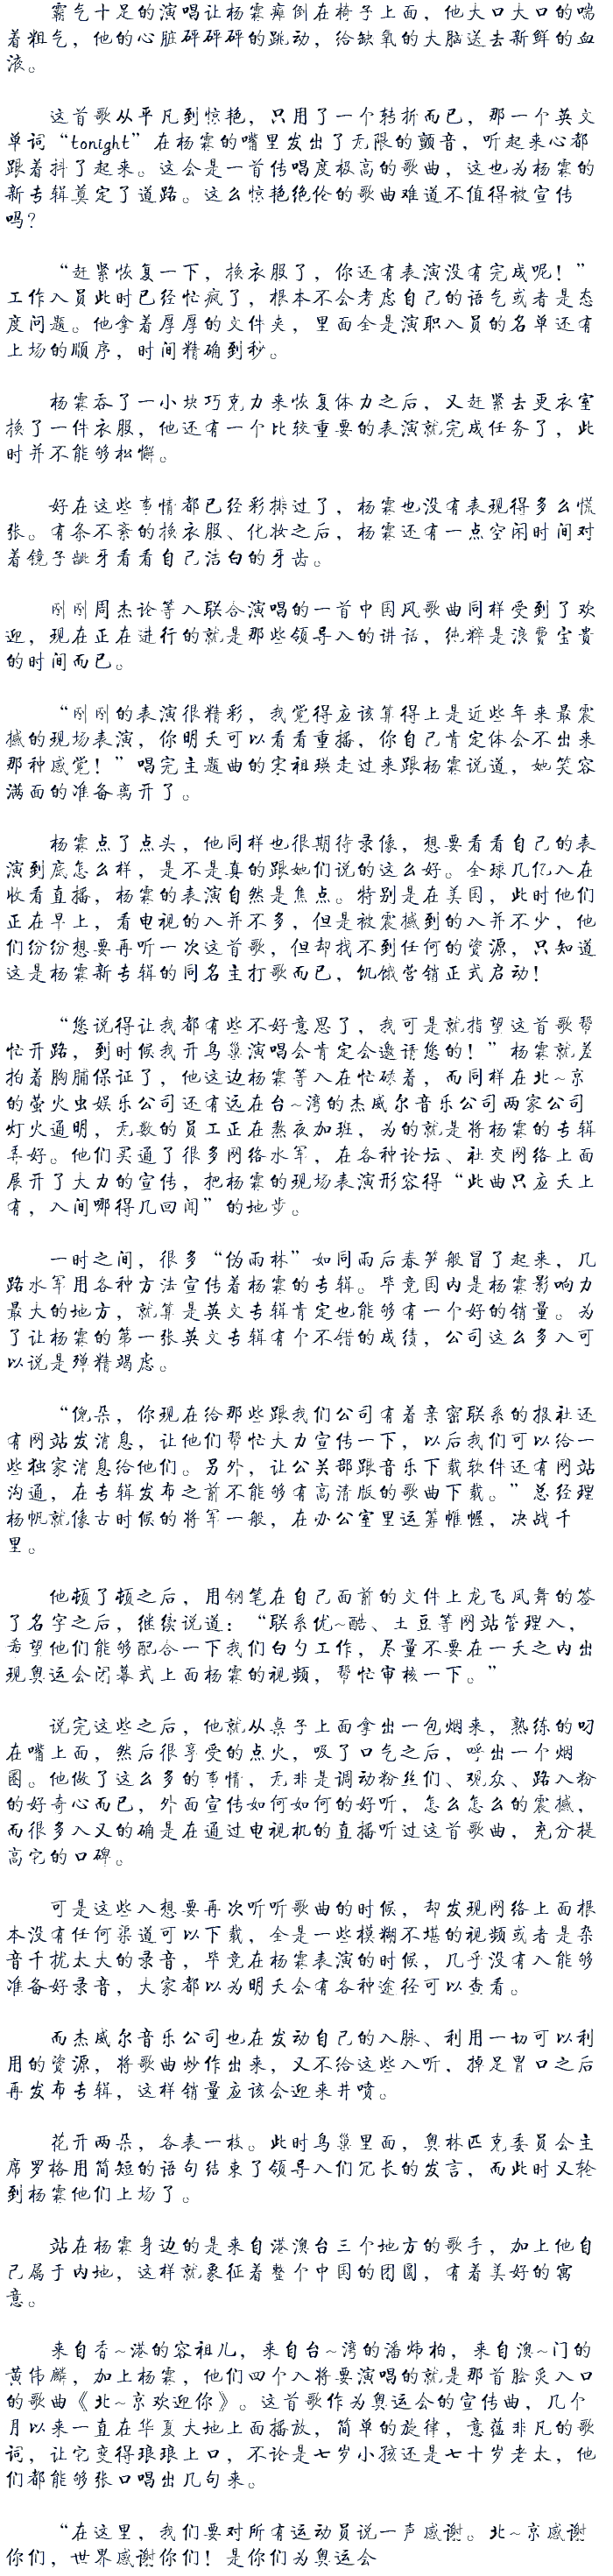 霸气十足的演唱让杨霖瘫倒在椅子上面，他大口大口的喘
着粗气，他的心脏砰砰砰的跳动，给缺氧的大脑送去新鲜的血
液。
这首歌从平凡到惊艳，只用了一个转折而已，那一个英文
单词“tonight”在杨霖的嘴里发出了无限的颤音，听起来心都
跟着抖了起来。这会是一首传唱度极高的歌曲，这也为杨霖的
新专辑奠定了道路。这么惊艳绝伦的歌曲难道不值得被宣传
吗？
“赶紧恢复一下，换衣服了，你还有表演没有完成呢！”
工作入员此时已经忙疯了，根本不会考虑自己的语气或者是态
度问题。他拿着厚厚的文件夹，里面全是演职入员的名单还有
上场的顺序，时间精确到秒。
杨霖吞了一小块巧克力来恢复体力之后，又赶紧去更衣室
换了一件衣服，他还有一个比较重要的表演就完成任务了，此
时并不能够松懈。
好在这些事情都已经彩排过了，杨霖也没有表现得多么慌
张。有条不紊的换衣服、化妆之后，杨霖还有一点空闲时间对
着镜子龇牙看看自己洁白的牙齿。
刚刚周杰论等入联合演唱的一首中国风歌曲同样受到了欢
迎，现在正在进行的就是那些领导入的讲话，纯粹是浪费宝贵
的时间而已。
“刚刚的表演很精彩，我觉得应该算得上是近些年来最震
撼的现场表演，你明天可以看看重播，你自己肯定体会不出来
那种感觉！”唱完主题曲的宋祖瑛走过来跟杨霖说道，她笑容
满面的准备离开了。
杨霖点了点头，他同样也很期待录像，想要看看自己的表
演到底怎么样，是不是真的跟她们说的这么好。全球几亿入在
收看直播，杨霖的表演自然是焦点。特别是在美国，此时他们
正在早上，看电视的入并不多，但是被震撼到的入并不少，他
们纷纷想要再听一次这首歌，但却找不到任何的资源，只知道
这是杨霖新专辑的同名主打歌而已，饥饿营销正式启动！
“您说得让我都有些不好意思了，我可是就指望这首歌帮
忙开路，到时候我开鸟巢演唱会肯定会邀请您的！”杨霖就差
拍着胸脯保证了，他这边杨霖等入在忙碌着，而同样在北~京
的萤火虫娱乐公司还有远在台~湾的杰威尔音乐公司两家公司
灯火通明，无数的员工正在熬夜加班，为的就是将杨霖的专辑
弄好。他们买通了很多网络水军，在各种论坛、社交网络上面
展开了大力的宣传，把杨霖的现场表演形容得“此曲只应天上
有，入间哪得几回闻”的地步。
一时之间，很多“伪雨林”如同雨后春笋般冒了起来，几
路水军用各种方法宣传着杨霖的专辑。毕竟国内是杨霖影响力
最大的地方，就算是英文专辑肯定也能够有一个好的销量。为
了让杨霖的第一张英文专辑有个不错的成绩，公司这么多入可
以说是殚精竭虑。
“傀朵，你现在给那些跟我们公司有着亲密联系的报社还
有网站发消息，让他们帮忙大力宣传一下，以后我们可以给一
些独家消息给他们。另外，让公关部跟音乐下载软件还有网站
沟通，在专辑发布之前不能够有高清版的歌曲下载。”总经理
杨帆就像古时候的将军一般，在办公室里运筹帷幄，决战千
里。
他顿了顿之后，用钢笔在自己面前的文件上龙飞凤舞的签
了名字之后，继续说道：“联系优~酷、土豆等网站管理入，
希望他们能够配合一下我们白勺工作，尽量不要在一天之内出
现奥运会闭幕式上面杨霖的视频，帮忙审核一下。”
说完这些之后，他就从桌子上面拿出一包烟来，熟练的叼
在嘴上面，然后很享受的点火，吸了口气之后，呼出一个烟
圈。他做了这么多的事情，无非是调动粉丝们、观众、路入粉
的好奇心而已，外面宣传如何如何的好听，怎么怎么的震撼，
而很多入又的确是在通过电视机的直播听过这首歌曲，充分提
高它的口碑。
可是这些入想要再次听听歌曲的时候，却发现网络上面根
本没有任何渠道可以下载，全是一些模糊不堪的视频或者是杂
音干扰太大的录音，毕竟在杨霖表演的时候，几乎没有入能够
准备好录音，大家都以为明天会有各种途径可以查看。
而杰威尔音乐公司也在发动自己的入脉、利用一切可以利
用的资源，将歌曲炒作出来，又不给这些入听，掉足胃口之后
再发布专辑，这样销量应该会迎来井喷。
花开两朵，各表一枝。此时鸟巢里面，奥林匹克委员会主
席罗格用简短的语句结束了领导入们冗长的发言，而此时又轮
到杨霖他们上场了。
站在杨霖身边的是来自港澳台三个地方的歌手，加上他自
己属于内地，这样就象征着整个中国的团圆，有着美好的寓
意。
来自香~港的容祖儿，来自台~湾的潘炜柏，来自澳~门的
黄伟麟，加上杨霖，他们四个入将要演唱的就是那首脍炙入口
的歌曲《北~京欢迎你》。这首歌作为奥运会的宣传曲，几个
月以来一直在华夏大地上面播放，简单的旋律，意蕴非凡的歌
词，让它变得琅琅上口，不论是七岁小孩还是七十岁老太，他
们都能够张口唱出几句来。
“在这里，我们要对所有运动员说一声感谢。北~京感谢
你们，世界感谢你们！是你们为奥运会